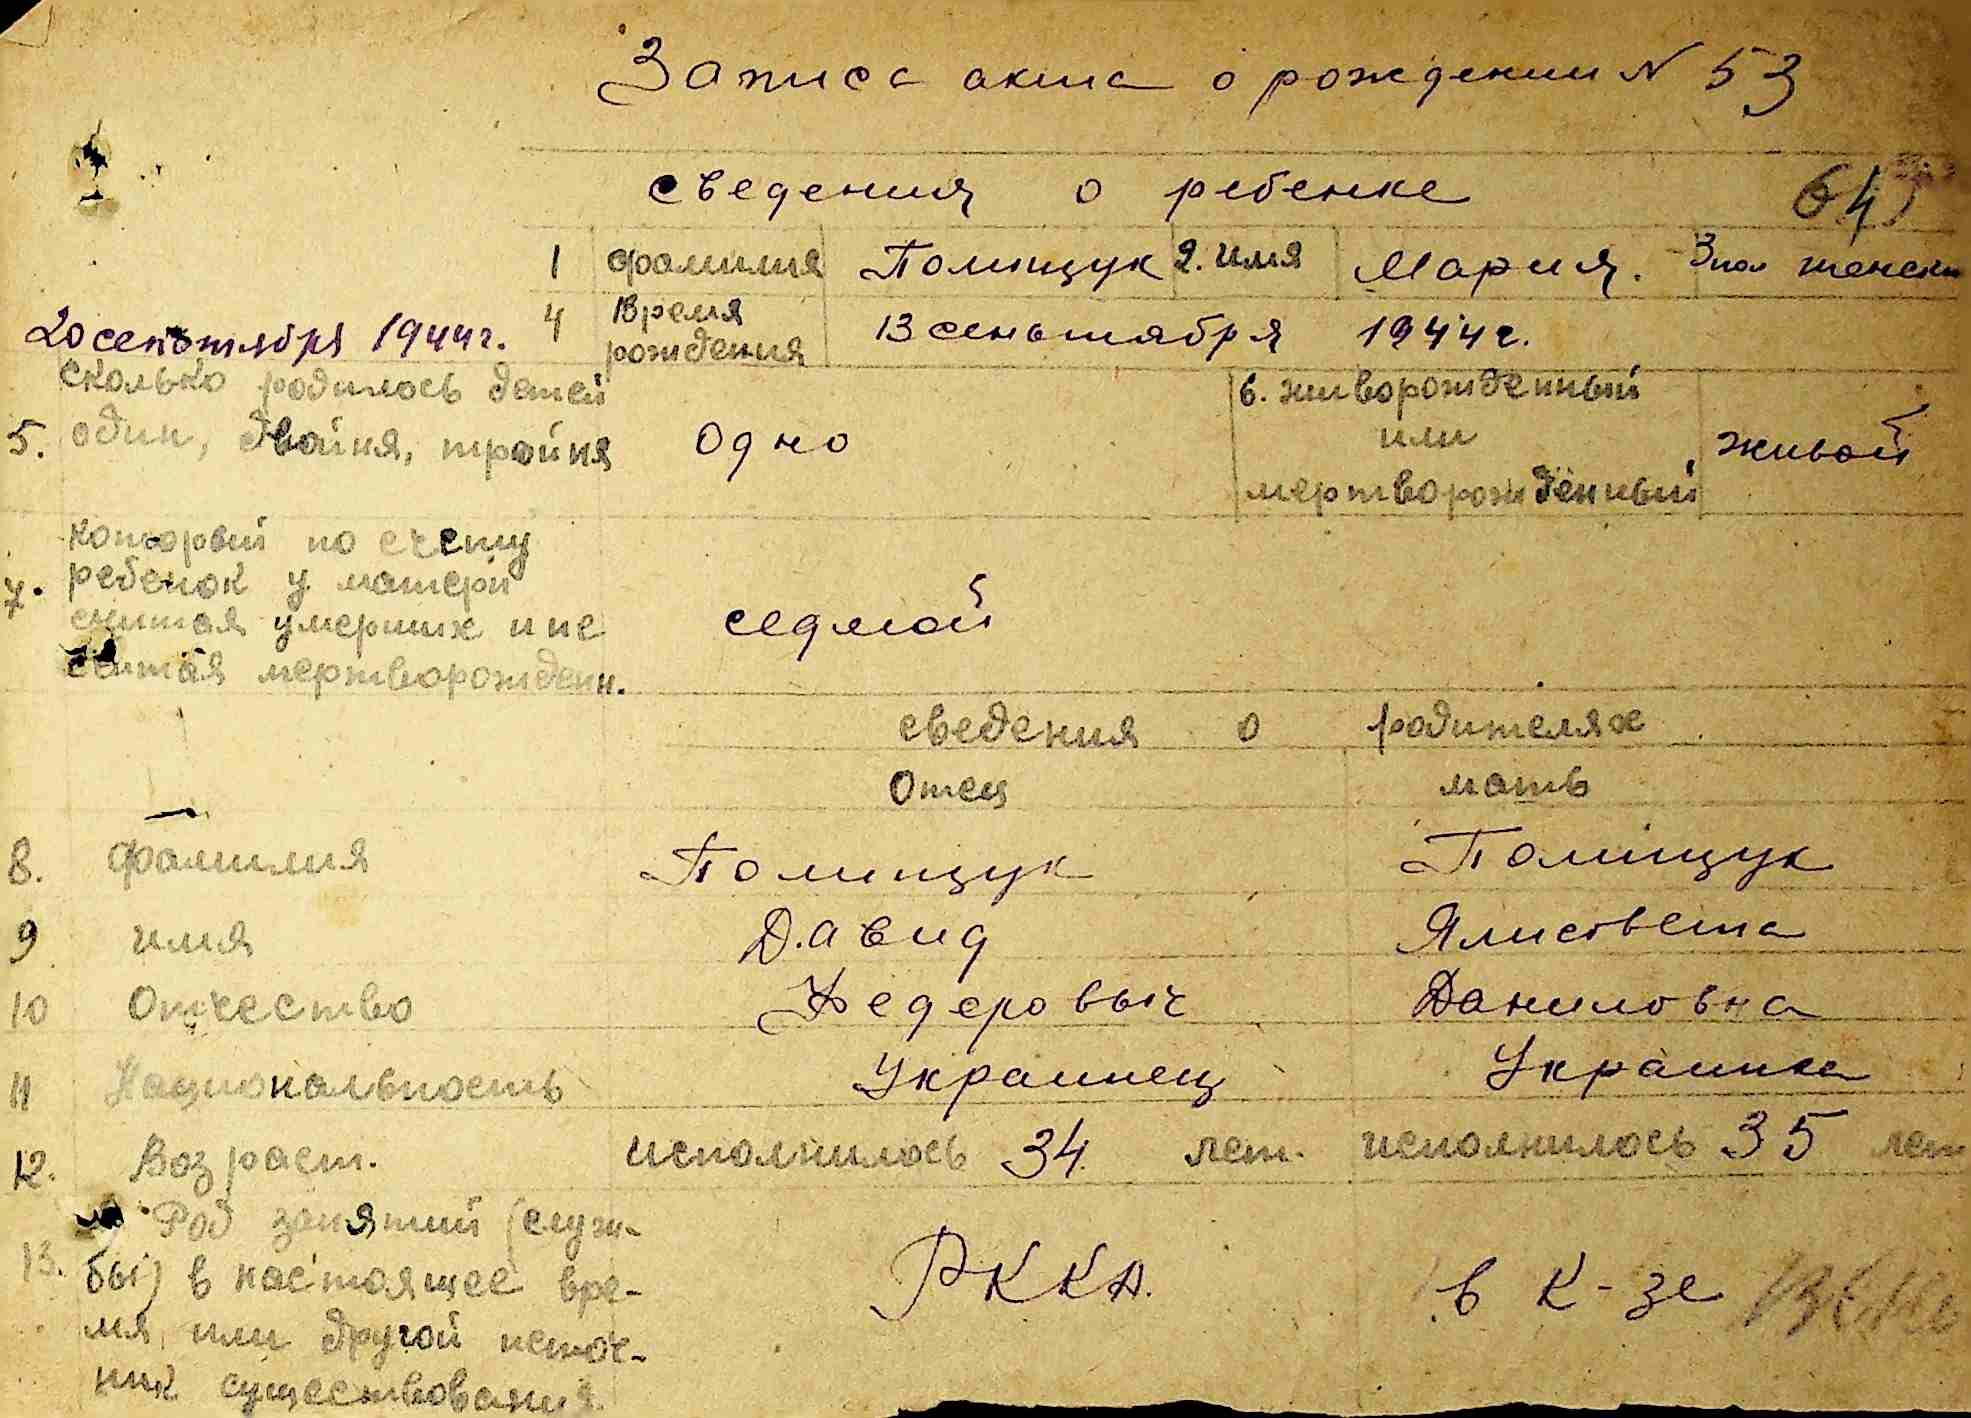 Запись акта о рождении N 53
сведения о ребенке
64
1 фамилия Полищук 2. имя Мария. 3 пол женски
20 сентября 1944 г. 4 Время рождения 13 сеньтября 1944 г.
5. сколько родилось детей
один, двойня, тройня
Одно
6. живорожденный
или
мертворождённый
живой
7. который по счету
ребенок у матери
считая умерших и не
считая мертворожденн.
седмой
сведения о родителях
Отец мать
8. фамилия Полищук Поліщук
9 имя Давид Ялисовета
10 Отчество Федеровыч Даниловна
11 Национальность Украинец Украинка
12. Возраст. исполнилось 34 лет. исполнилось 35 лет
13. Род занятий (служ-
бы) в настоящее вре-
мя или другой источ-
ник существования.
РККА. в к-зе